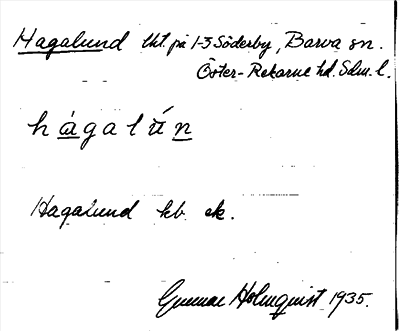 Hagalund tht. på 1-3 Söderby, Barva sn.
Öster-Rekarne hd. Sdm. l.
hàgalún
Hagalund kb. ek.
Gunnar Holmquist 1935.